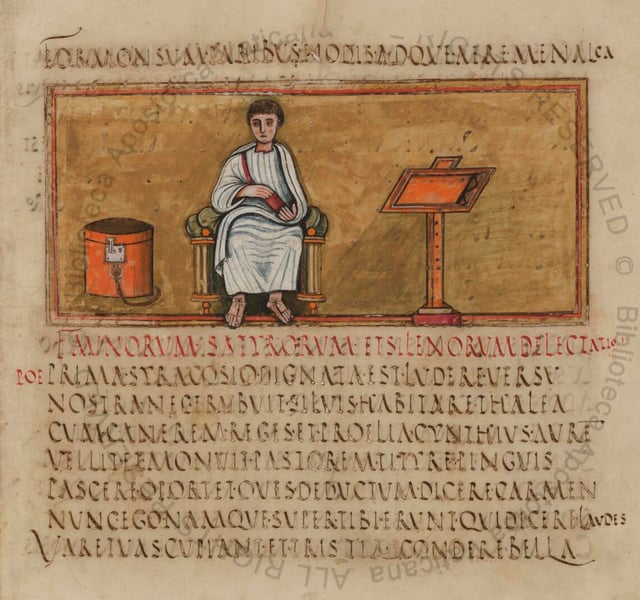 FORMONSVM·PARIBVS·NODIS·ADQVE AERE MENALCA
FAVNORVM·SATYRORVM·ET SILENORVM·DELECTATIO
POE PRIMA·SYRACOSIO DIGNATA·EST·LVDERE VERSV
NOSTRA·NEC ERVBVIT·SILVIS·HABITARE·THALEA
CVM·CANEREM·REGES·ET·PROELIA·CYNTHIVS·AVRE
VELLIT·ET·MONVIT·PASTOREM·TITYRE·PINGVIS
PASCERE·OPORTET·OVES·DEDVCTVM·DICERE CARMEN
NVNC EGO NAMQVE·SVPER TIBI ERVNT·QVI DICERE LAVDES
VARE TVAS CVPIANT·ET·TRISTIA·CONDERE BELLA
© Biblioteca Apostolica Vaticana ALL RIGHTS RESERVED